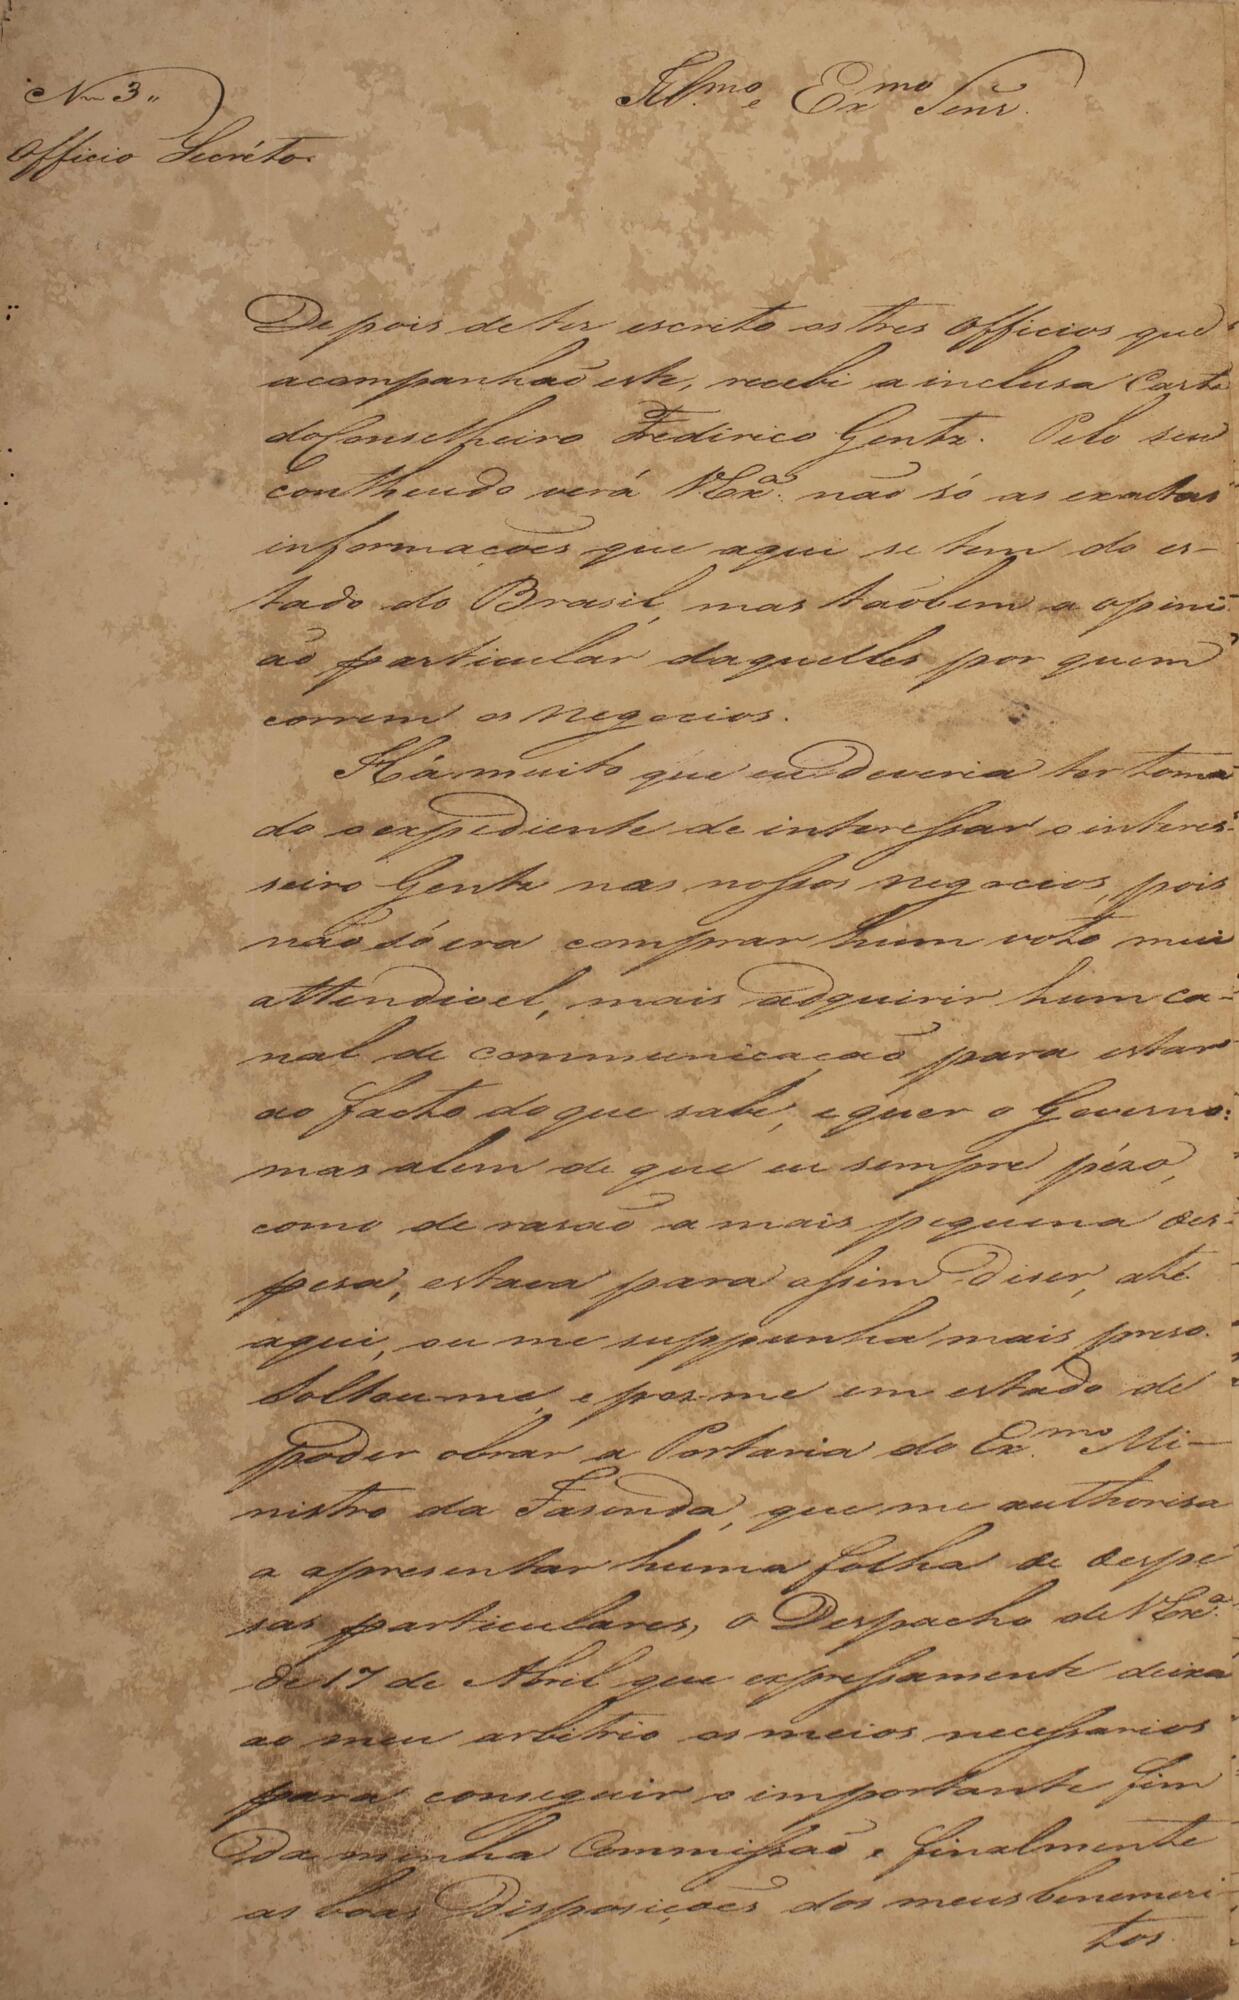 N. 3,,
Officio Secréto.
Illmo. e Exmo. Senr.
Depois de ter escrito os tres Officios que
acompanhão este, recebi a inclusa Carta
do Conselheiro Frederico Gentz. Pelo seu
contheudo verá V Exa. não só as exactas
informações que aqui se tem do es-
tado do Brasil, mas taõbem a opini-
ão particular daquelles por quem
correm os negocios.
Há muito que eu deveria ter toma-
do o expediente de interessar o interes-
seiro Gentz nos nossos negocios, pois
não só era comprar hum voto mui
attendivel, mais adquirir hum ca-
nal de communicação para estar
ao facto do que sabe, e quer o Governo:
mas alem de que eu sempre pézo,
como de rasão a mais pequena des-
pesa, estava para assim diser, até
aqui, ou me suppunha mais preso.
Soltou-me, e poz-me em estado de
poder obrar a Portaria do Exmo. Mi-
nistro da Fasenda, que me authorisa
a apresentar huma folha de despe-
sas particulares, o Despacho de V Exa.
de 17 de Abril que expressamente deixa
ao meu arbitrio os meios necessarios
para conseguir o importante fim
da minha Commissão e finalmente
as boas Disposições dos meus benemeri-
tos